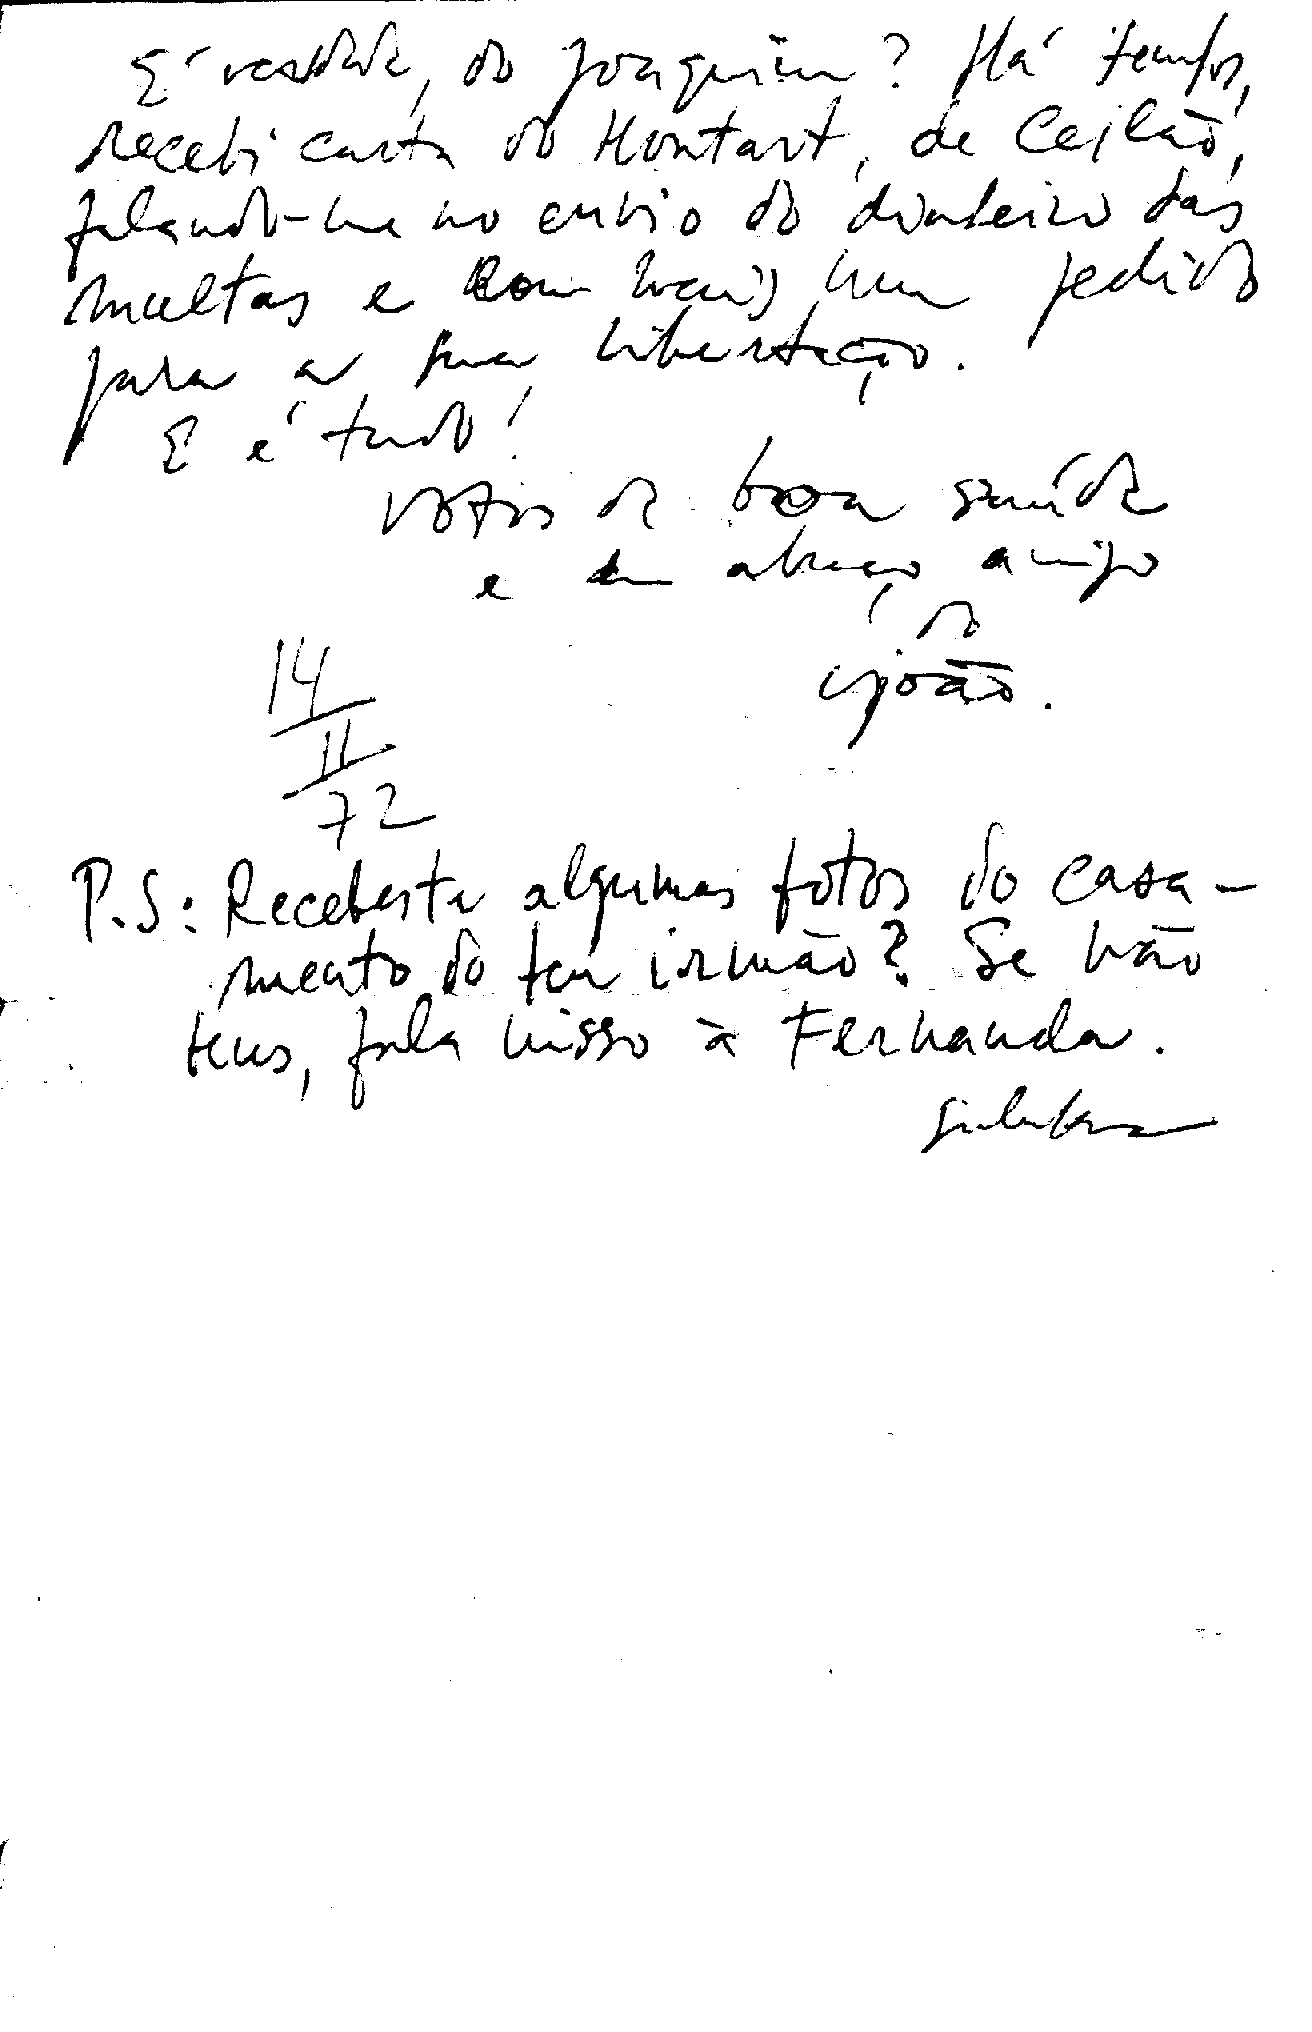 E' verdade, do Joaquim? Há tempos,
recebi carta do Houtart, de Ceilão,
falando-me no envio do dinheiro das
multas e com mais um pedido
para a sua libertação.
E é tudo!
Votos de boa saúde
e um abraço amigo
do
João.
14
11
72
P.S: Recebeste algumas fotos do casa-
mento do teu irmão? Se não
tens, fala nisso à Fernanda.